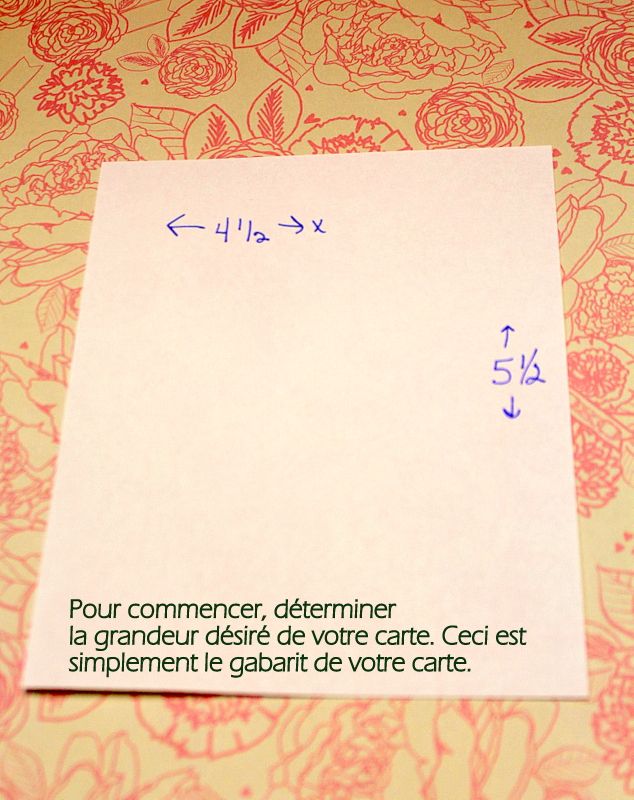 ← 4 1/2 → x
↑
5 1/2
↓
Pour commencer, déterminer
la grandeur désiré de votre carte. Ceci est
simplement le gabarit de votre carte.